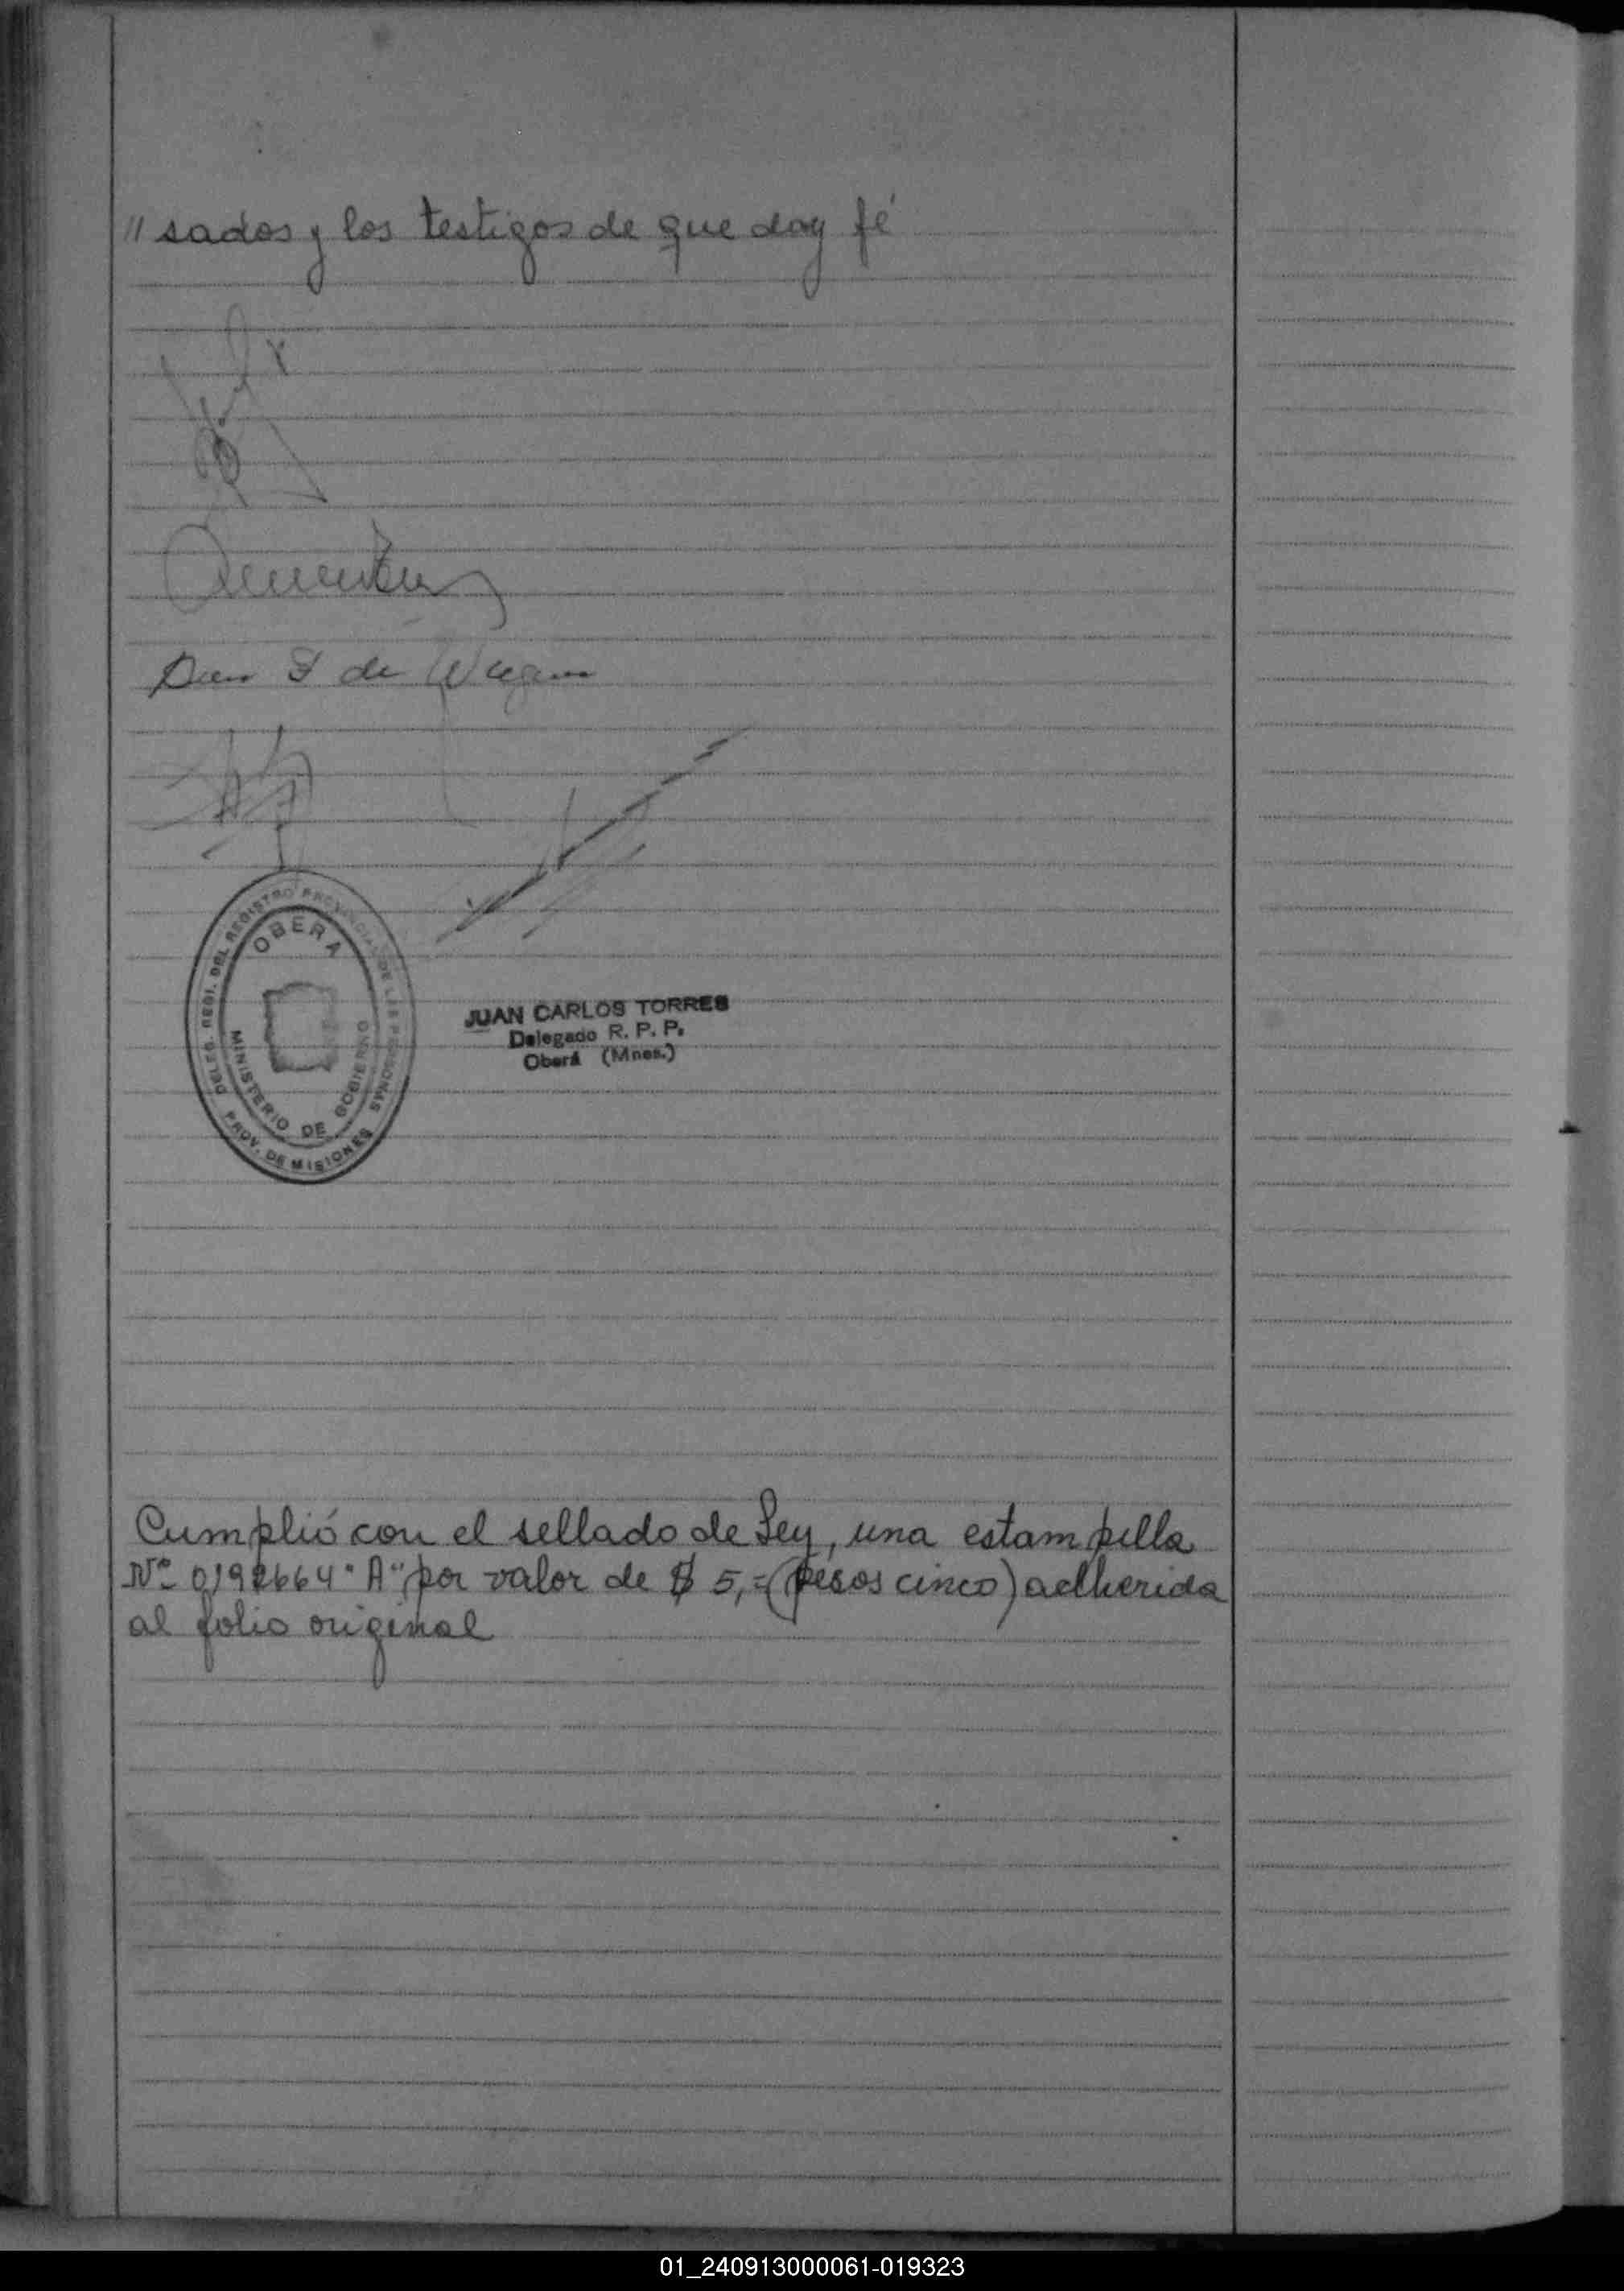 " sados y los testigos de que doy fé
de
DELEG. REGI. DEL REGISTRO PROVINCIAL DE LAS PERSONAS
OBERA
MINISTERIO DE GOBIERNO
PROV. DE MISIONES
JUAN CARLOS TORRES
Delegado R. P. P.
Oberá (Mnes.)
Cumplió con el sellado de Ley, una estampilla
Nº 0192664 "A" por valor de $ 5,= (pesos cinco) adherida
al folio original
01_240913000061-019323